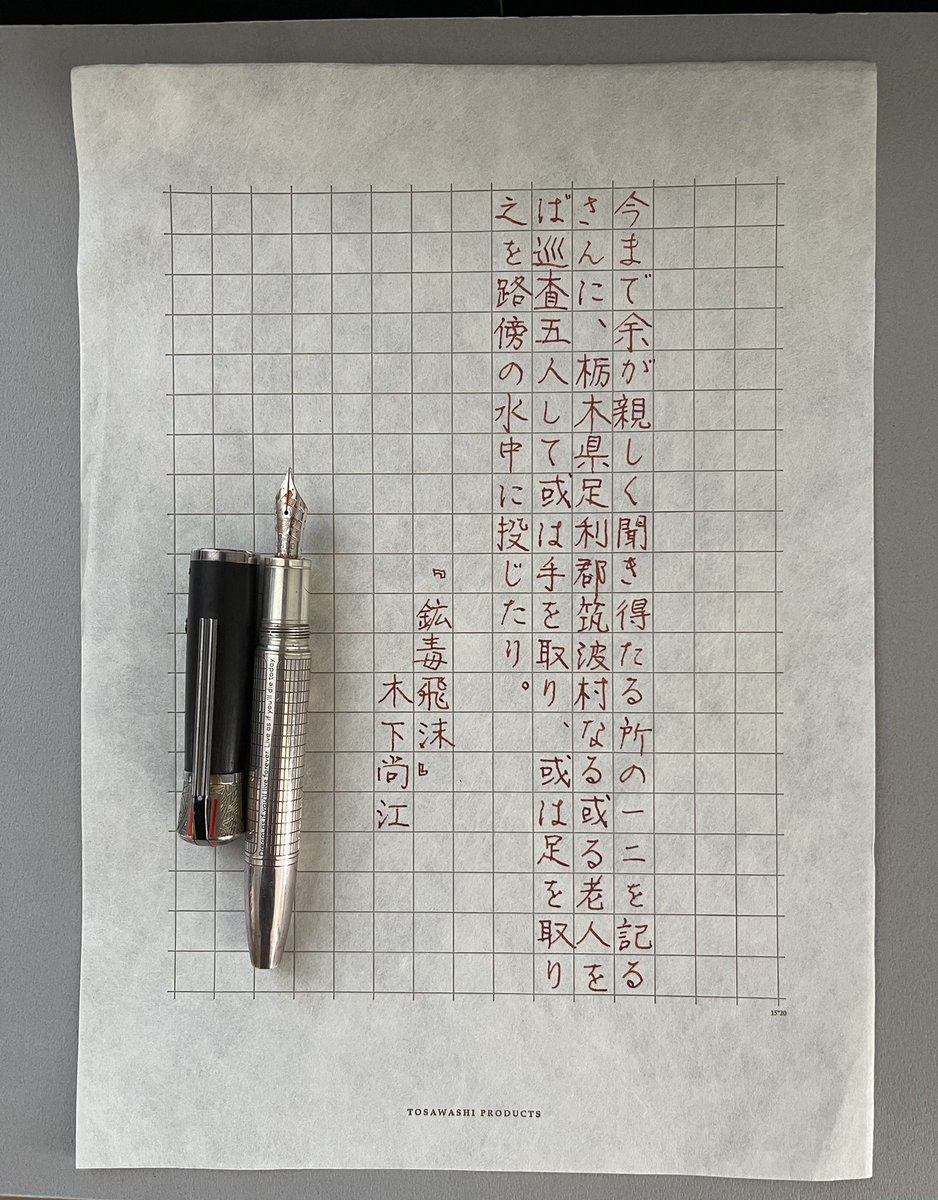 今まで余が親しく聞き得たる所の一二を記る
さんに、栃木県足利郡筑波村なる或る老人を
ば巡査五人して或は手を取り、或は足を取り
之を路傍の水中に投じたり。
『鉱毒飛沫』
木下尚江
Dream as if you'll live forever Live as if you'll die today
15*20
TOSAWASHI PRODUCTS